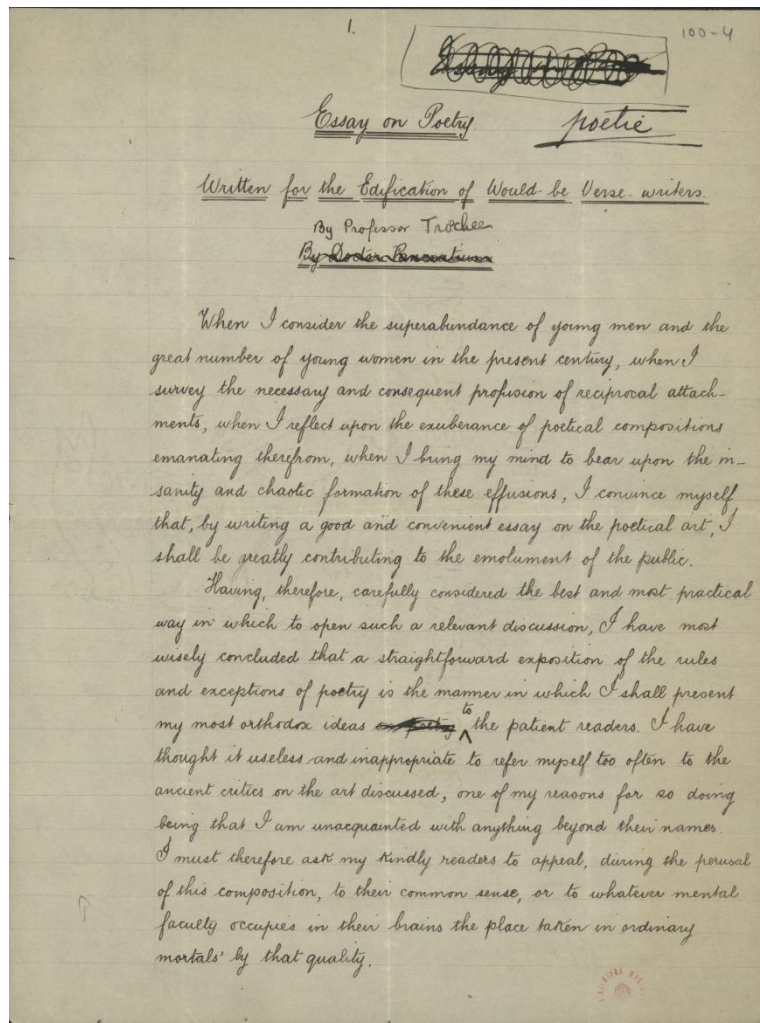 1.
100-4
Essay on Poetry
poetic
Written for the Edification of Would-be Verse-writers.
By Professor Trochee
By Doctor Pancratium
When I consider the superabundance of young men and the
great number of young women in the present century, when I
survey the necessary and consequent profusion of reciprocal attach-
ments, when I reflect upon the exuberance of poetical compositions
emanating therefrom, when I bring my mind to bear upon the in-
sanity and chaotic formation of these effusions, I convince myself
that, by writing a good and convenient essay on the poetical art, I
shall be greatly contributing to the emolument of the public.
Having, therefore, carefully considered the best and most practical
way in which to open such a relevant discussion, I have most
wisely concluded that a straightforward exposition of the rules
and exceptions of poetry is the manner in which I shall present
my most orthodox ideas to the patient readers. I have
thought it useless and inappropriate to refer myself too often to the
ancient critics on the art discussed, one of my reasons for so doing
being that I am unacquainted with anything beyond their names.
I must therefore ask my kindly readers to appeal, during the perusal
of this composition, to their common sense, or to whatever mental
faculty occupies in their brains the place taken in ordinary
mortals' by that quality.